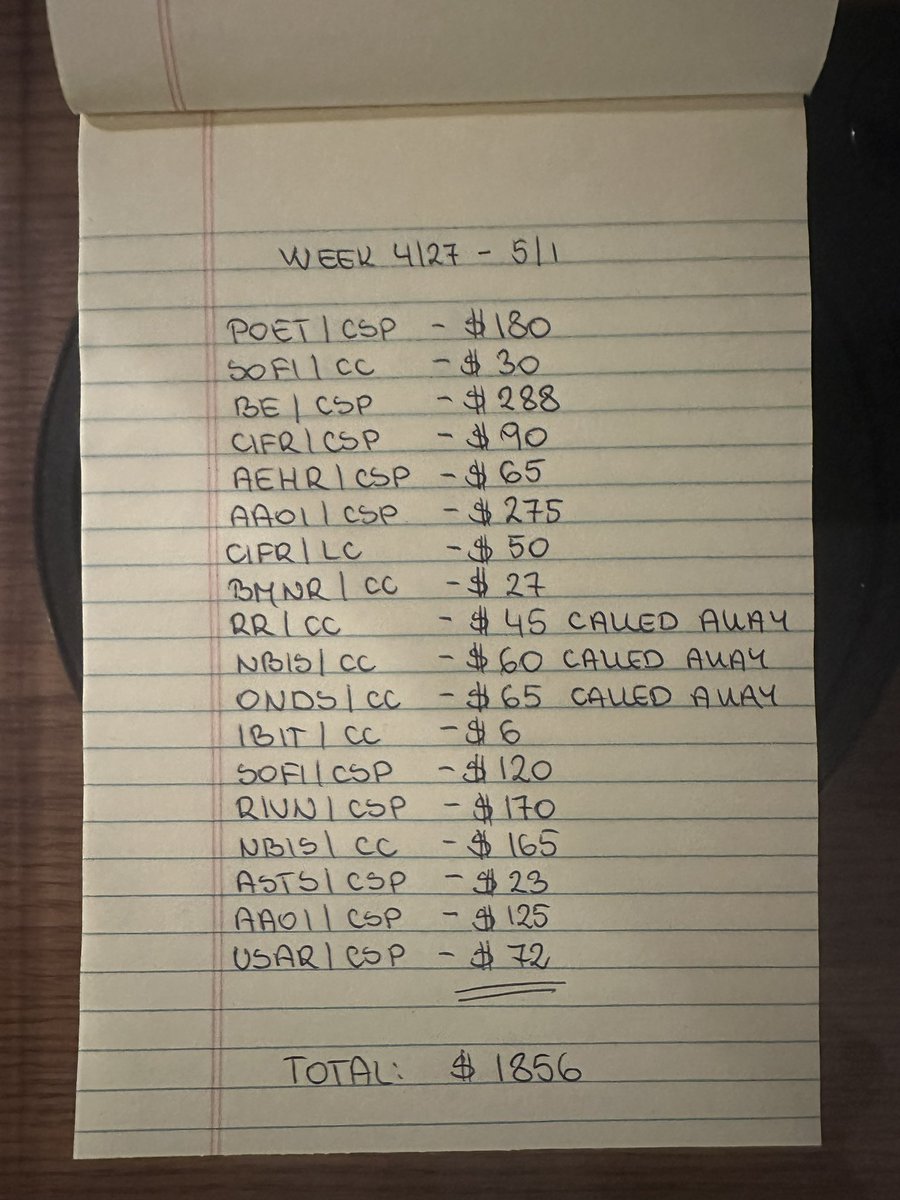 WEEK 4/27 - 5/1
POET | CSP - $ 180
SOFI | CC - $ 30
BE | CSP - $ 288
CIFR | CSP - $ 90
AEHR | CSP - $ 65
AAOI | CSP - $ 275
CIFR | LC - $ 50
BMNR | CC - $ 27
RR | CC - $ 45 CALLED AWAY
NBIS | CC - $ 60 CALLED AWAY
ONDS | CC - $ 65 CALLED AWAY
IBIT | CC - $ 6
SOFI | CSP - $ 120
RIVN | CSP - $ 170
NBIS | CC - $ 165
ASTS | CSP - $ 23
AAOI | CSP - $ 125
USAR | CSP - $ 72
TOTAL: $ 1856